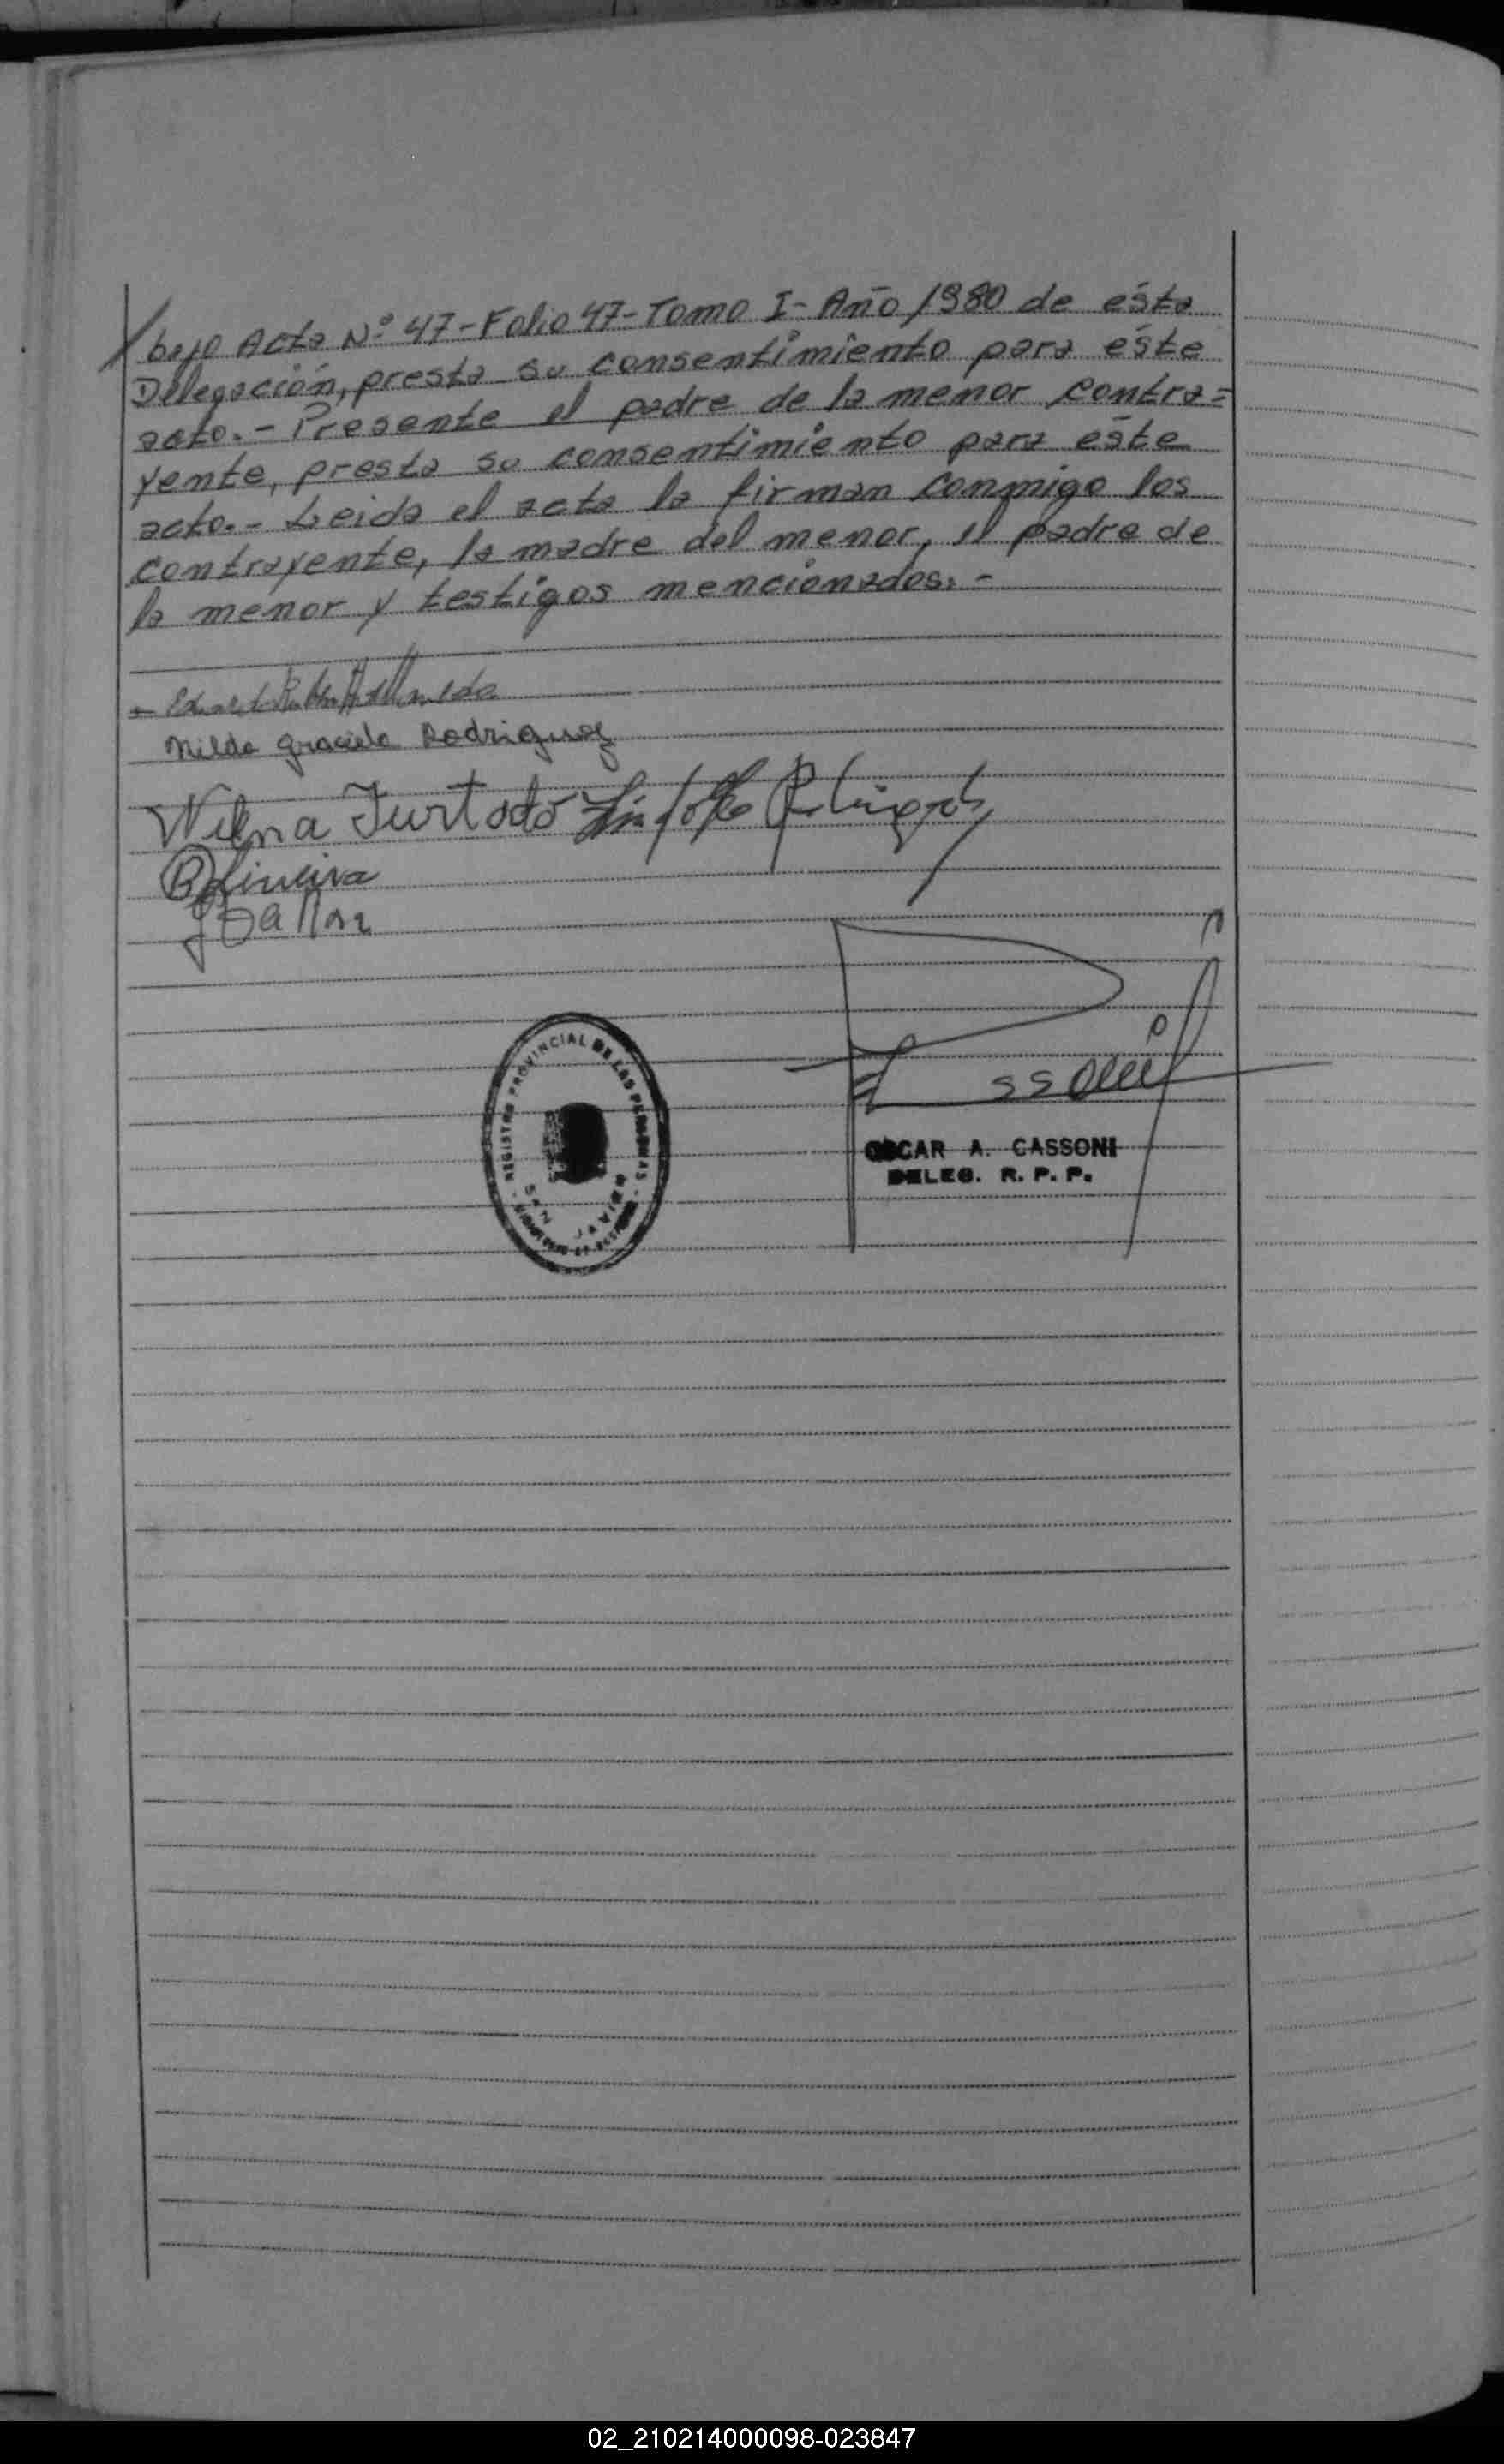 bajo Acta Nº 47-Folio 47-Tomo I-Año 1980 de ésta
Delegación, presta su consentimiento para éste
acto.- Presente el padre de la menor contra=
yente, presta su consentimiento para éste
acto.- Leida el acta la firman conmigo los
contrayente, la madre del menor, el padre de
la menor y testigos mencionados.-
Nilda Graciela Rodriguez
Wilma Furtado
REGISTRO PROVINCIAL DE LAS PERSONAS
SAN JAVIER
OSCAR A. CASSONI
DELEG. R. P. P.
02_210214000098-023847